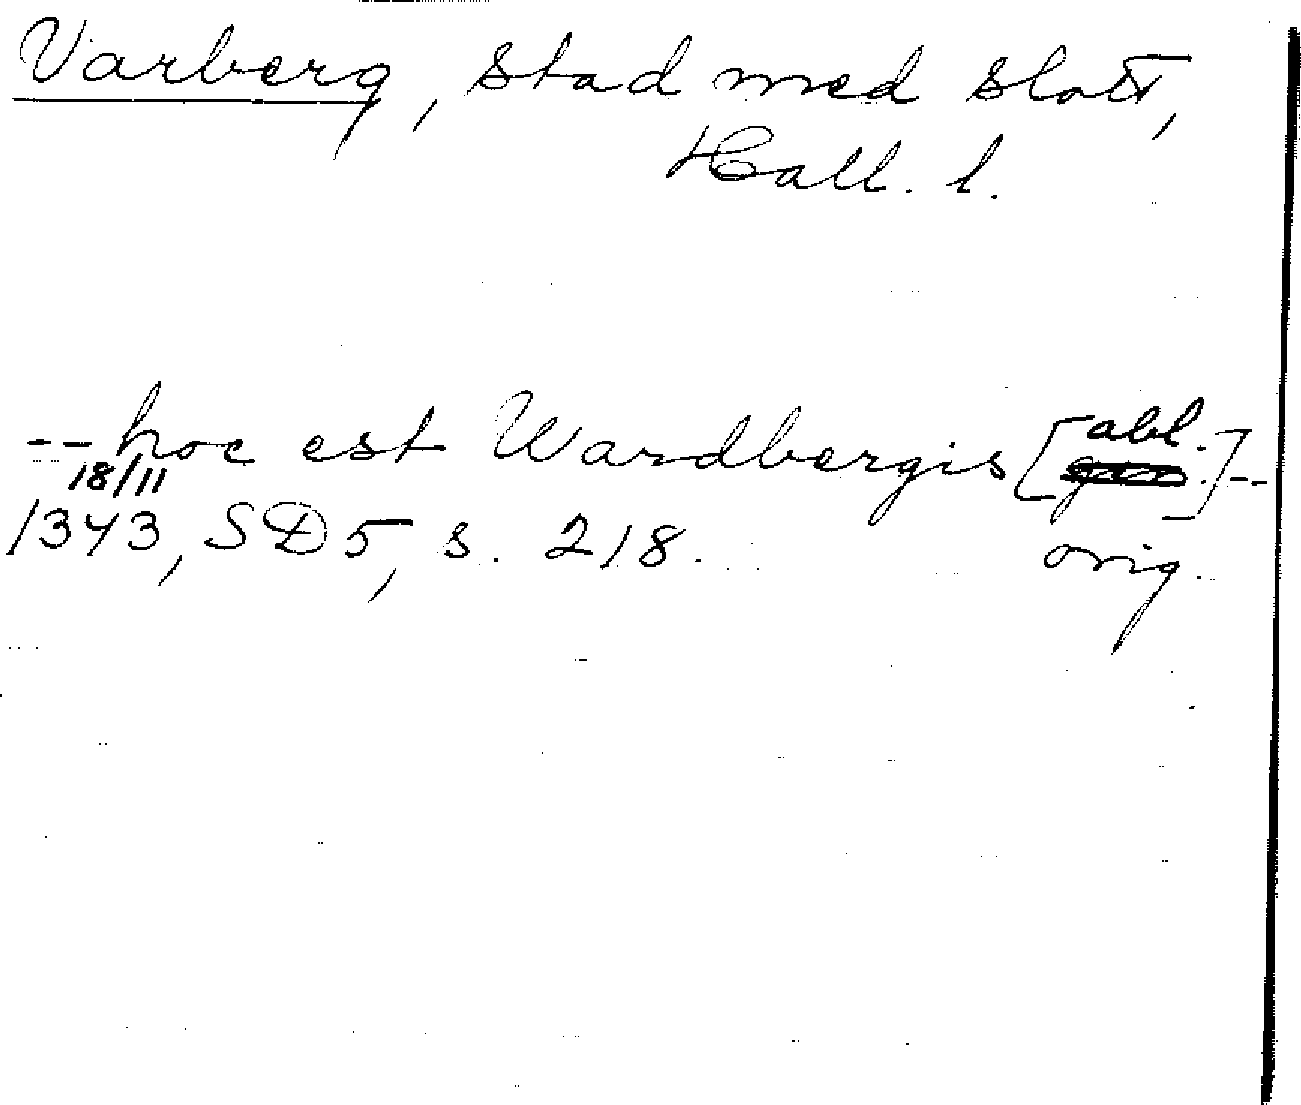 Varberg, stad med slott,
Hall. l.
-- hoc est Wardbergis [abl.] --
18/11
1343, SD 5, s. 218. orig.